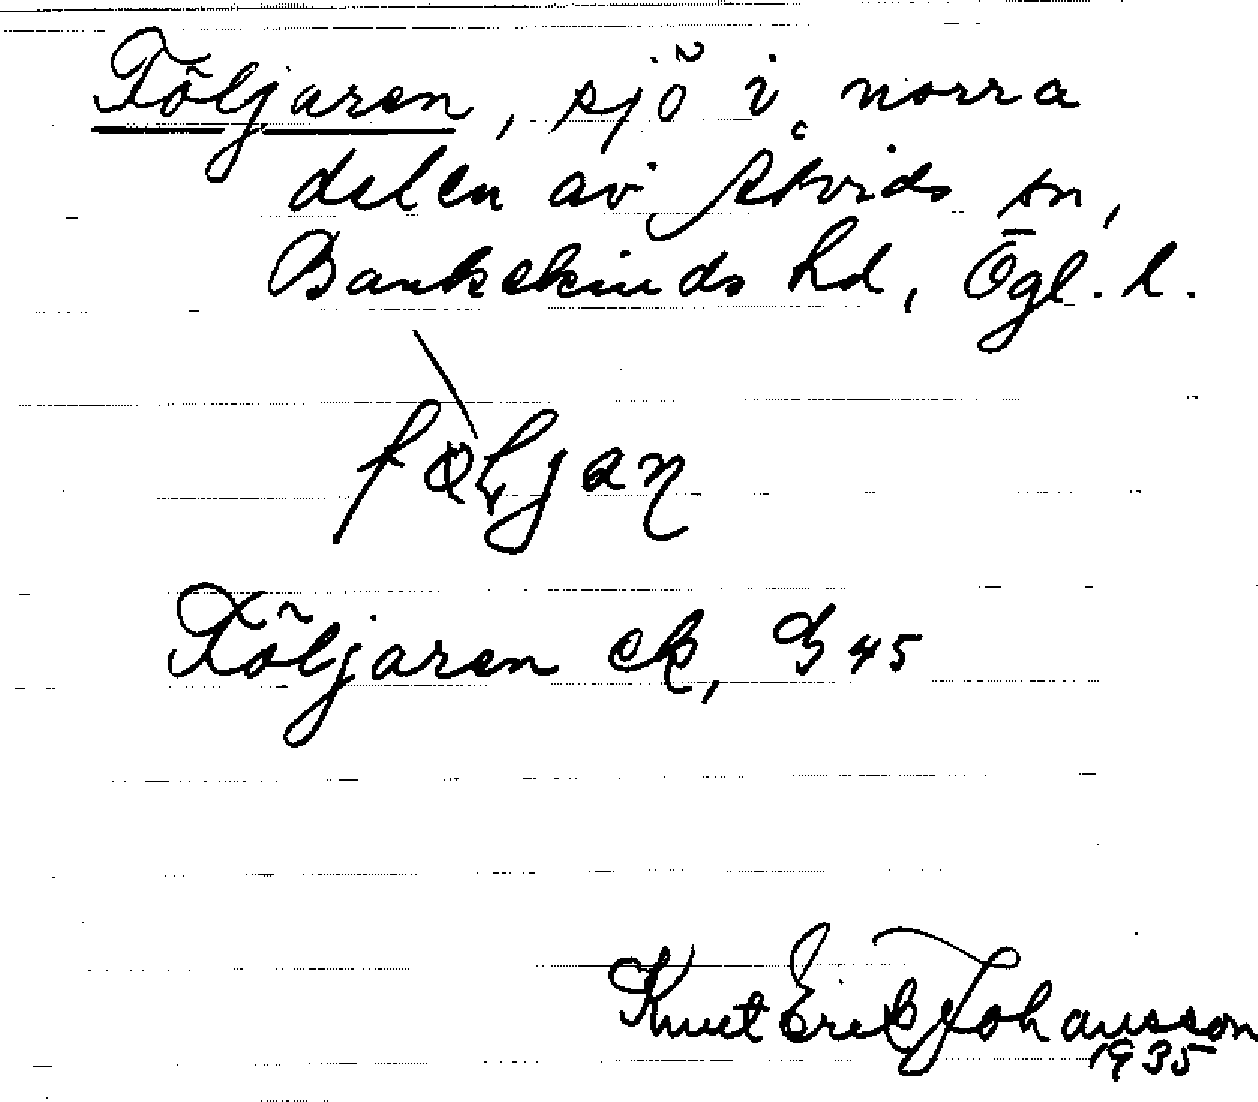 Följaren, sjö i norra
delen av Åtvids sn,
Bankekinds hd, Ögl. l.
Följaren ek, G 45
Knut Erik Johansson
1935